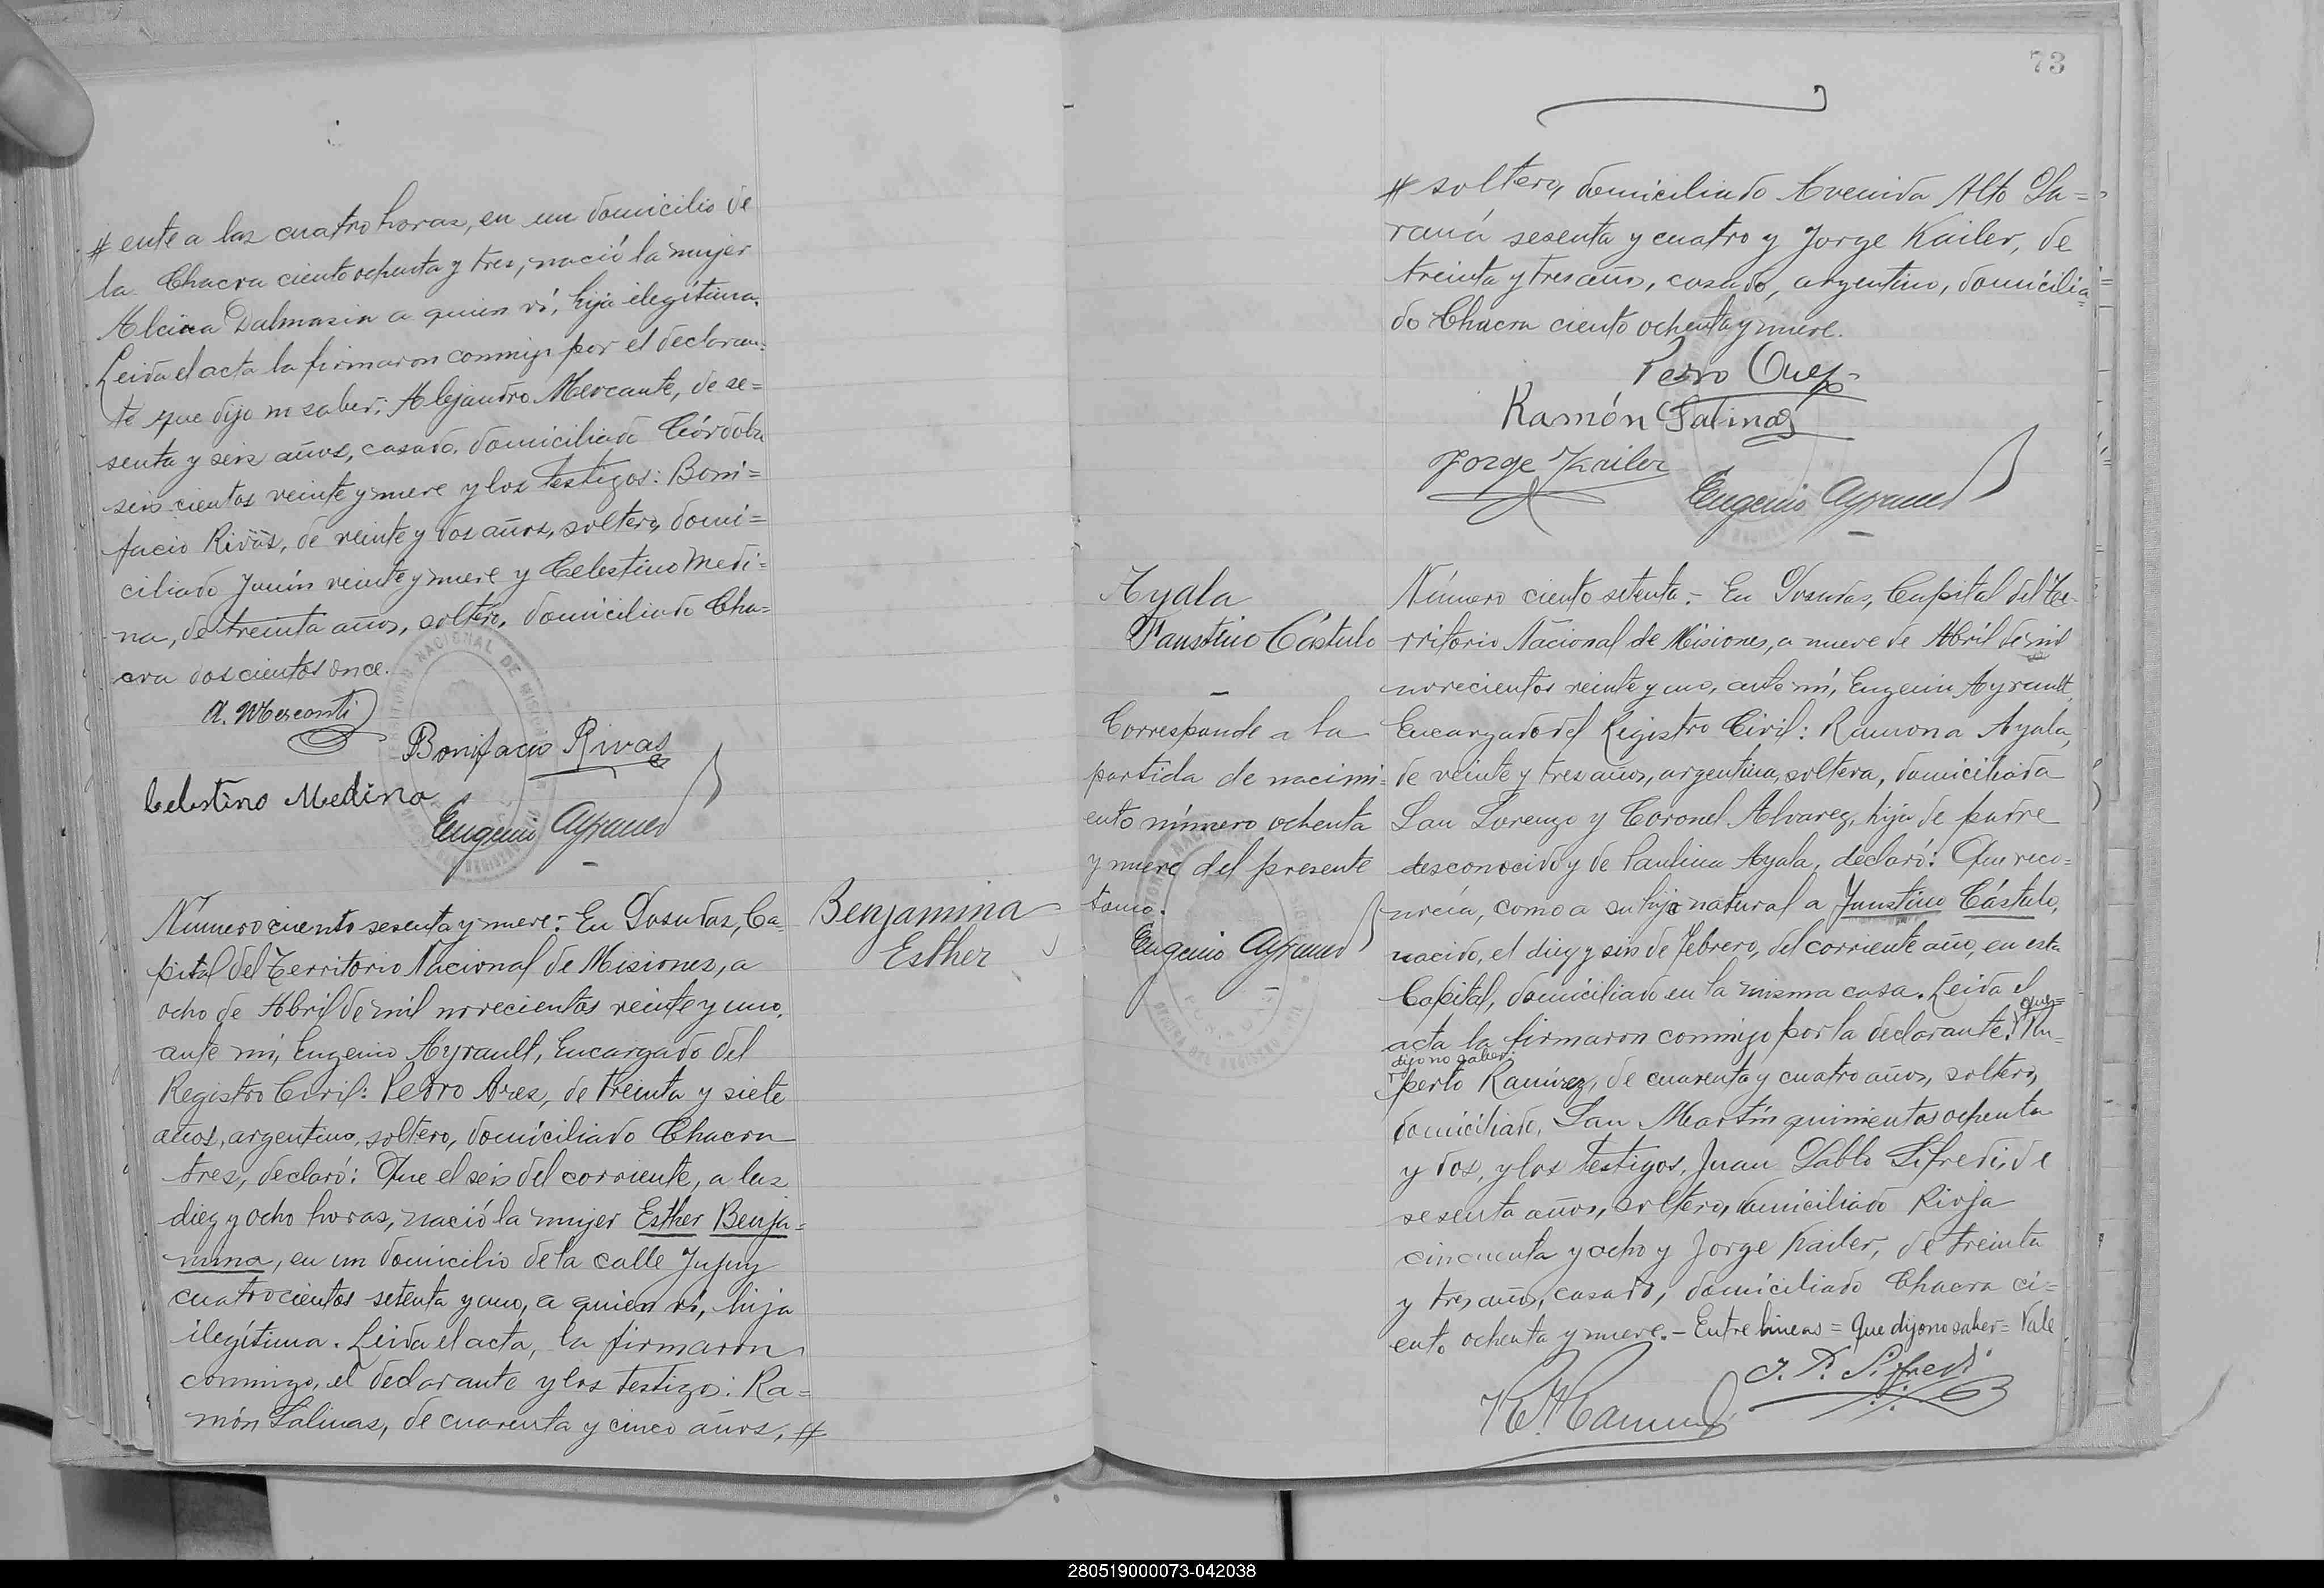 # ente a las cuatro horas, en un domicilio de
la Chacra ciento ochenta y tres, nació la mujer
Alcira Dalmasia a quien ví, hija ilegítima.
Leida el acta la firmaron conmigo por el declaran=
te que dijo no saber; Alejandro Mercante, de se=
senta y seis años, casado, domiciliado Córdoba
seis cientos veinte y nueve y los testigos: Boni=
facio Rivas, de veinte y dos años, soltero, domi=
ciliado Junín veinte y nueve y Celestino Medi=
na, de treinta años, soltero, domiciliado Cha=
cra doscientos once.
Bonifacio Rivas
Celestino Medina
Eugenio Ayrault
Número ciento sesenta y nueve: En Posadas, Ca=
pital del Territorio Nacional de Misiones, a
ocho de Abril de mil novecientos veinte y uno,
ante mí, Eugenio Ayrault, Encargado del
Registro Civil: Pedro Ares, de treinta y siete
años, argentino, soltero, domiciliado Chacra
tres, declaró: Que el seis del corriente, a las
diez y ocho horas, nació la mujer Esther Benja=
mina, en un domicilio de la calle Jujuy
cuatrocientos setenta y uno, a quien ví, hija
ilegítima. Leida el acta, la firmaron
conmigo, el declarante y los testigos: Ra=
món Salinas, de cuarenta y cinco años, #
Benjamina
Esther
73
# soltero, domiciliado Avenida Alto Pa=
raná sesenta y cuatro y Jorge Kailer, de
treinta y tres años, casado, argentino, domicilia=
do Chacra ciento ochenta y nueve.
Ramón Salinas
Jorge Kailer
Eugenio Ayrault
Ayala
Faustino Cástulo
Corresponde a la
partida de nacimi=
ento número ochenta
y nueve del presente
tomo.
Eugenio Ayrault
Número ciento setenta.- En Posadas, Capital del Te=
rritorio Nacional de Misiones, a nueve de Abril de mil
novecientos veinte y uno, ante mí, Eugenio Ayrault,
Encargado del Registro Civil: Ramona Ayala,
de veinte y tres años, argentina, soltera, domiciliada
San Lorenzo y Coronel Alvarez, hija de padre
desconocido y de Paulina Ayala, declaró: Que reco=
nocía, como a su hijo natural a Faustino Cástulo,
nacido, el diez y seis de Febrero, del corriente año, en esta
Capital, domiciliado en la misma casa. Leida el
acta la firmaron conmigo por la declarante, que dijo no saber: Ru=
perto Ramírez, de cuarenta y cuatro años, soltero,
domiciliado, San Martín quinientos ochenta
y dos, y los testigos, Juan Pablo Sifredi, de
sesenta años, soltero, domiciliado Rioja
cincuenta y ocho y Jorge Kailer, de treinta
y tres años, casado, domiciliado Chacra ci=
ento ochenta y nueve.- Entre lineas = que dijo no saber = Vale
J. P. Sifredi
280519000073-042038